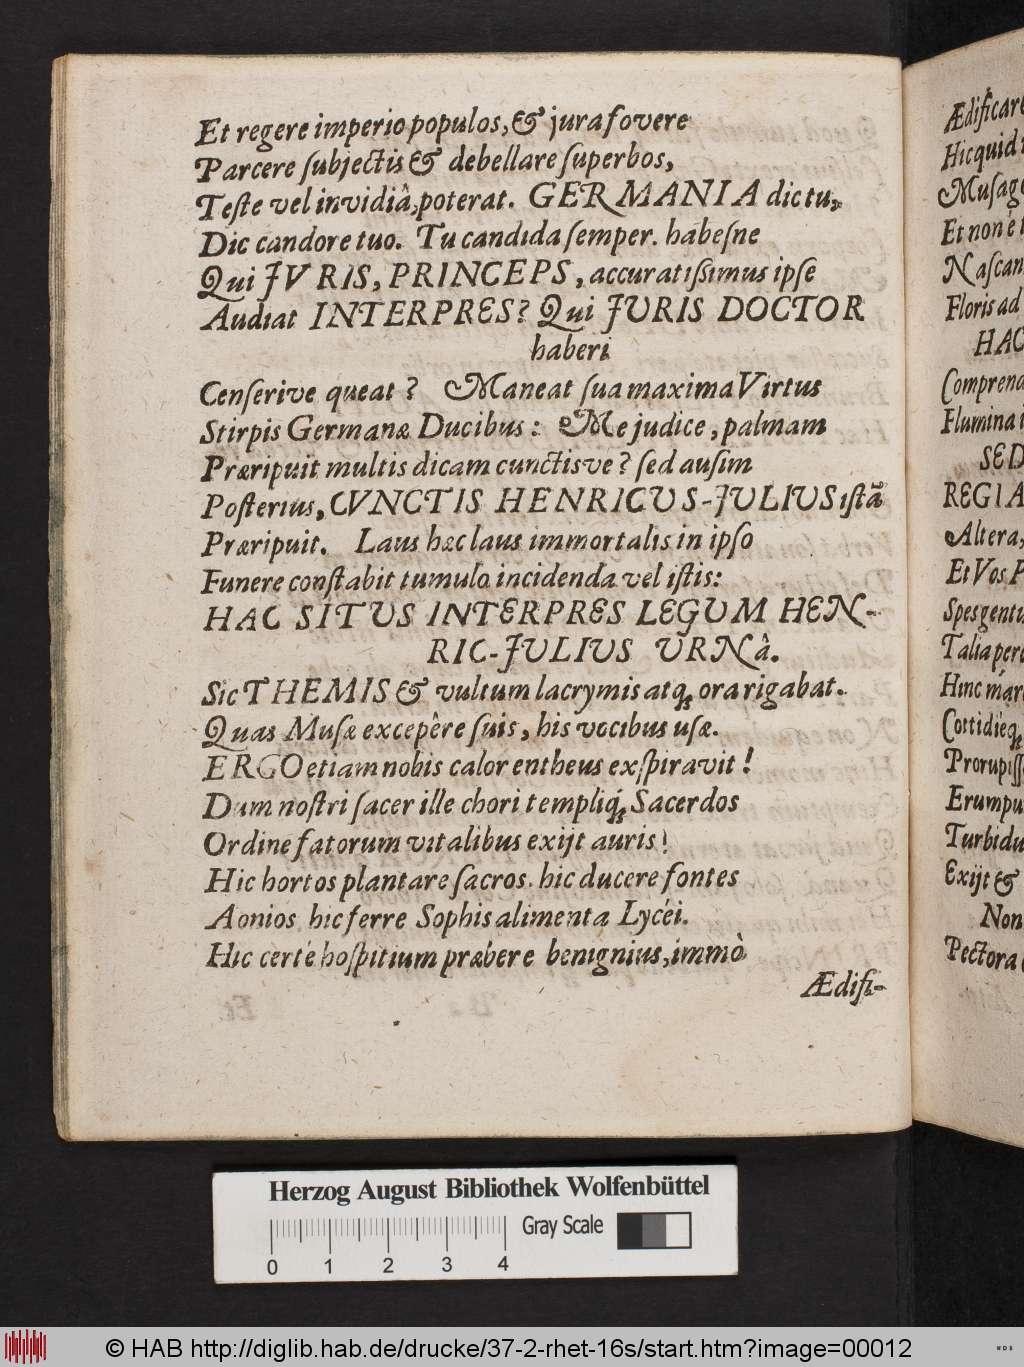 Et regere imperio populos, & jura fovere
Parcere ſubjectis & debellare ſuperbos,
Teſte vel invidiâ, poterat. GERMANIA dictu,
Dic candore tuo. Tu candida ſemper. habeſne
Qui JVRIS, PRINCEPS, accuratiſſimus ipſe
Audiat INTERPRES? Qui JURIS DOCTOR
haberi
Cenſerive queat? Maneat ſua maxima Virtus
Stirpis Germanæ Ducibus: Me judice, palmam
Præripuit multis dicam cunctisve? ſed auſim
Poſterius, CVNCTIS HENRICUS-JULIUS iſtã
Præripuit. Laus hæc laus immortalis in ipſo
Funere conſtabit tumulo incidenda vel iſtis:
HAC SITUS INTERPRES LEGUM HEN-
RIC-JULIUS URNâ.
Sic THEMIS & vultum lacrymis atq; ora rigabat.
Quas Muſæ excepêre ſuis, his vocibus uſæ.
ERGO etiam nobis calor entheus exſpiravit!
Dum noſtri ſacer ille chori templiq́; Sacerdos
Ordine fatorum vitalibus exijt auris!
Hic hortos plantare ſacros. hic ducere fontes
Aonios hic ferre Sophis alimenta Lycéi.
Hic certè hoſpitium præbere benignius, immò
Ædifi-
Ædificare
Hic quid
Muſag
Et non è
Naſcan
Floris ad
HAC
Comprend
Flumina
SED
REGIA
Altera,
Et Vos P
Spes gentis
Talia per
Hinc
Cottidièq;
Prorupiſſ
Erumpu
Turbidu
Exijt &
Non
Pectora
Herzog August Bibliothek Wolfenbüttel
0 1 2 3 4
Gray Scale
© HAB http://diglib.hab.de/drucke/37-2-rhet-16s/start.htm?image=00012